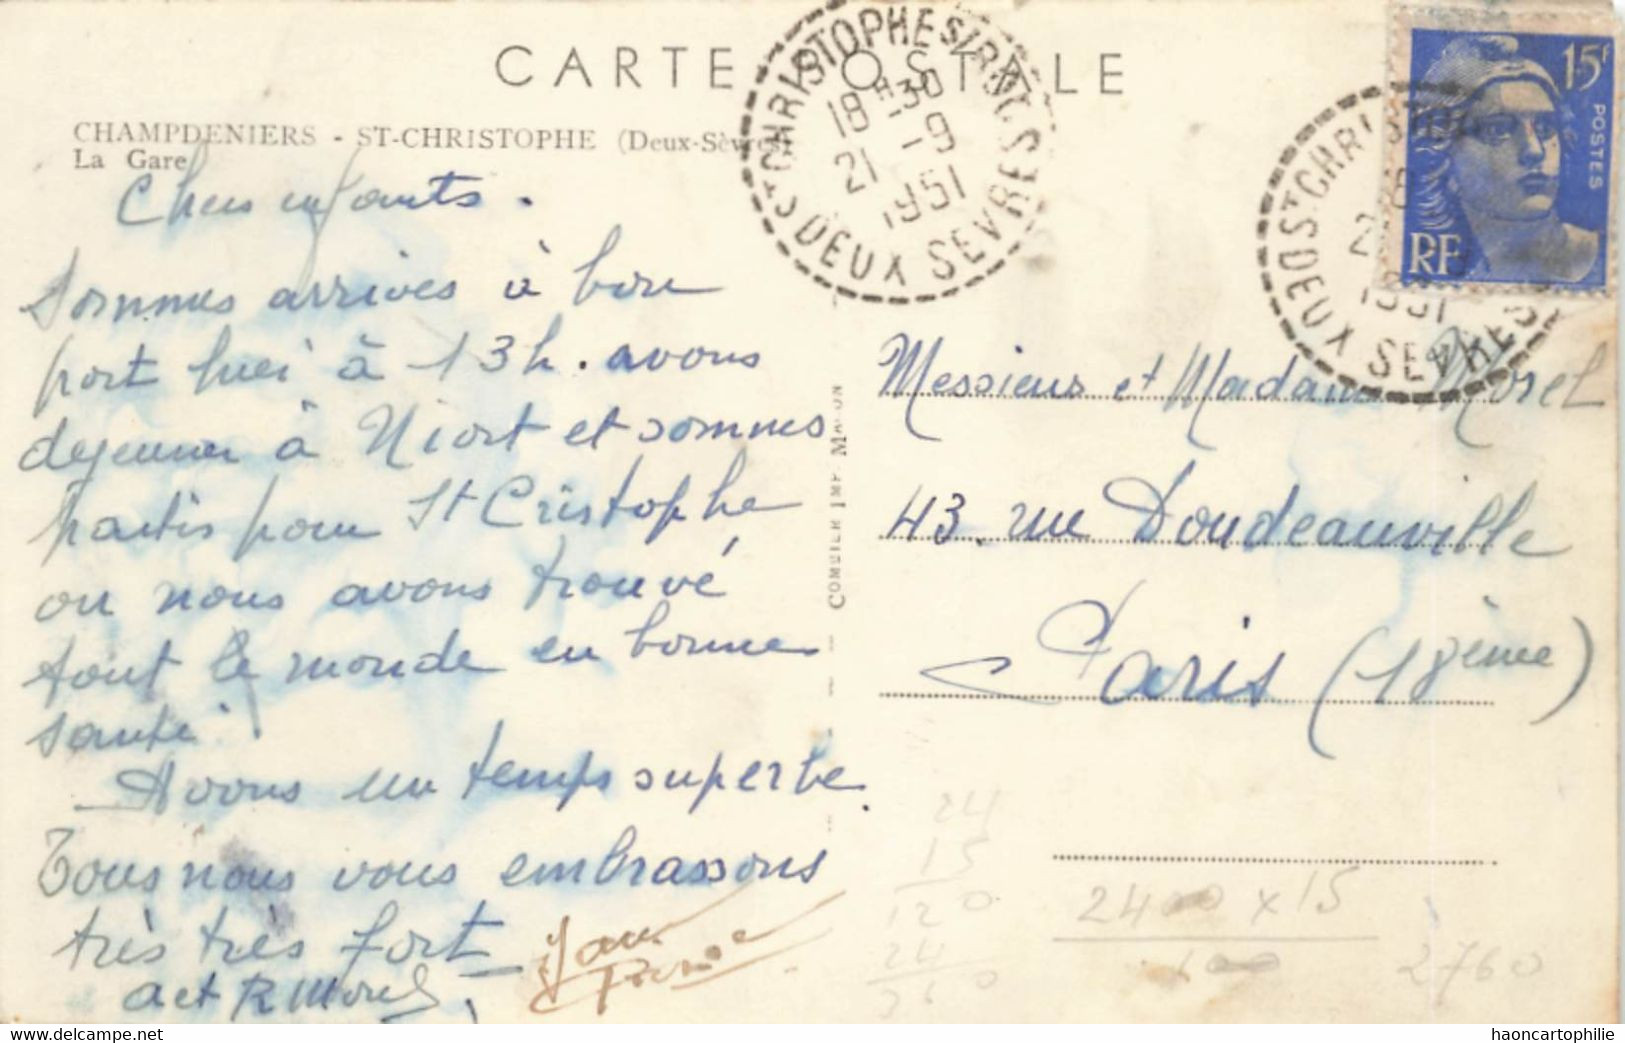 CARTE POSTALE
CHAMPDENIERS - ST-CHRISTOPHE (Deux-Sèvres)
La Gare
ST CHRISTOPHE S/ROC
18 H 30
21 - 9
1951
DEUX SEVRES
15F
POSTES
RF
ST CHRIS
1951
DEUX SEVRES
Chers enfants.
Sommes arrives à bon
port hier à 13h. avons
dejeuner à Niort et sommes
partis pour St Cristophe
ou nous avons trouvé
tout le monde en bonne
santé
Avons un temps superbe.
Tous nous vous embrassons
très très fort
a et R Morel
COMBIER IMP MACON
Messieur et Madame Morel
43. rue Doudeauville
Paris (18ème)
24
15
120
24
360
2400 x 15
100
2760
haoncartophilie